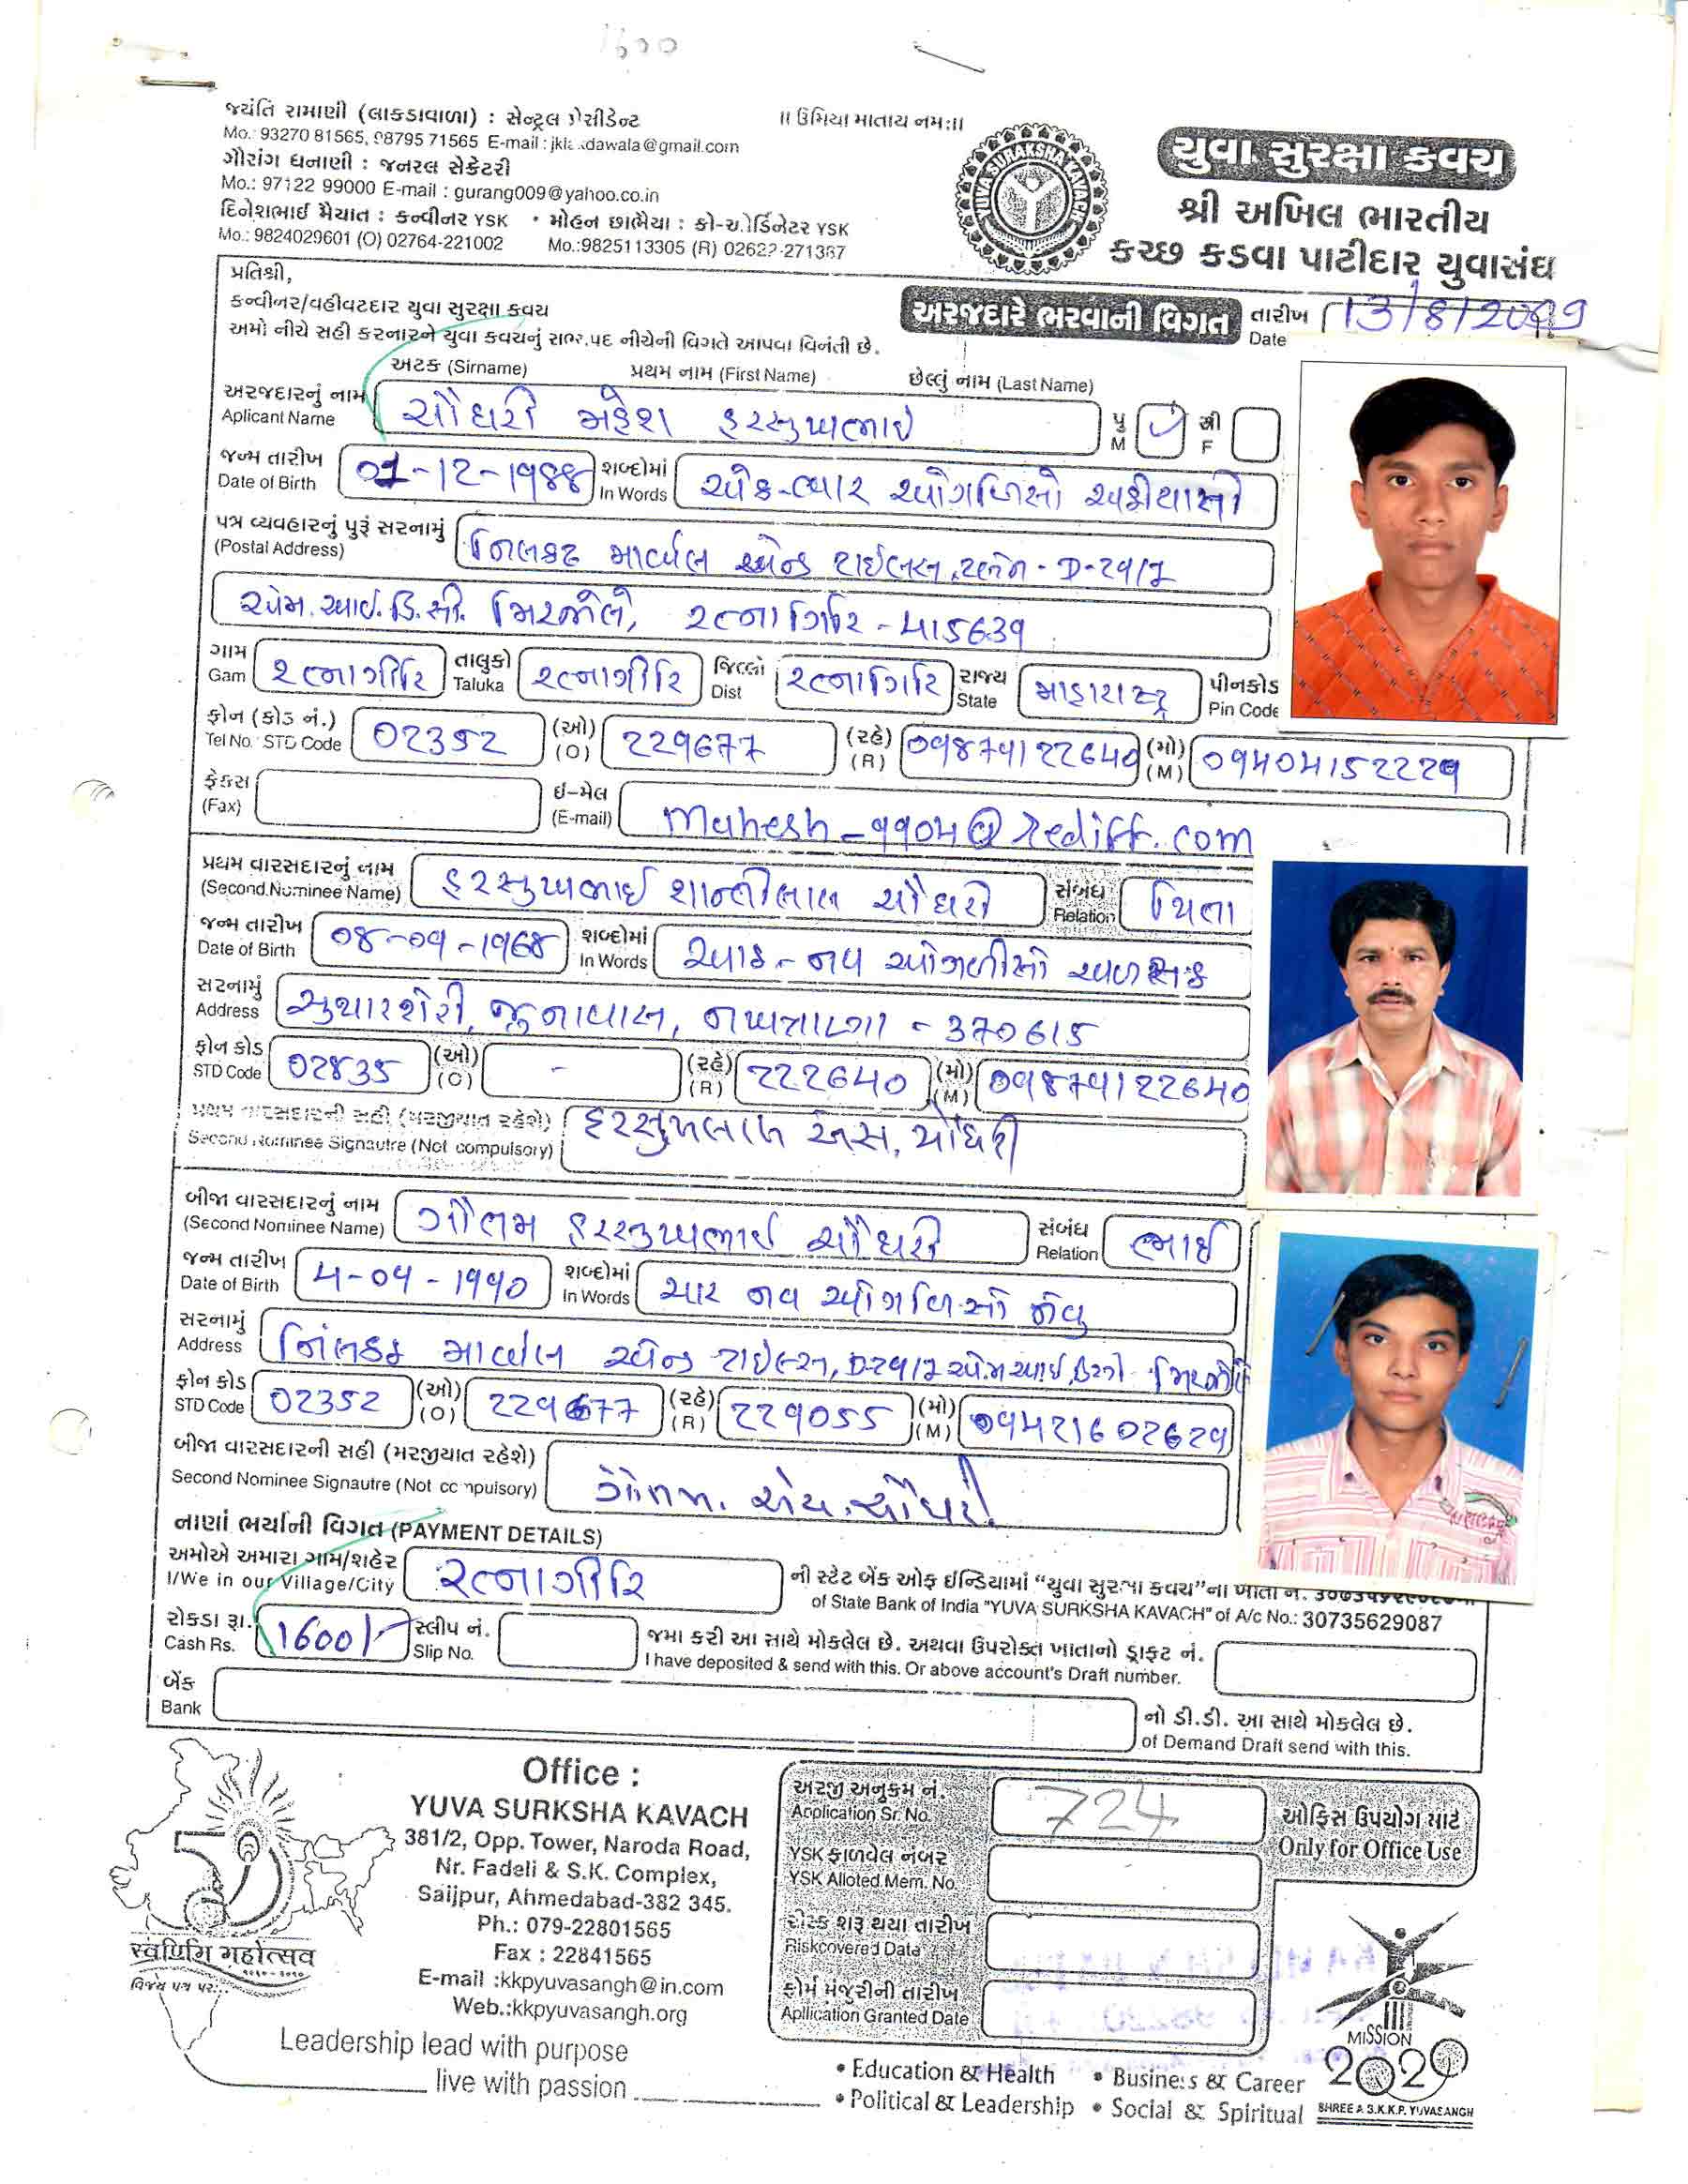 1600
જયંતિ રામાણી (લાકડાવાળા) : સેન્ટ્રલ પ્રેસીડેન્ટ
Mo.: 93270 81565, 98795 71565 E-mail : @gmail.com
ગૌરાંગ ધનાણી : જનરલ સેક્રેટરી
Mo.: 97122 99000 E-mail : gurang009@yahoo.co.in
દિનેશભાઈ મૈયાત : કન્વીનર YSK • મોહન છાભૈયા : કો-ઓર્ડિનેટર YSK
Mo.: 9824029601 (O) 02764-221002 Mo.:9825113305 (R) 02622-271387
॥ ઉમિયા માતાય નમઃ॥
YUVA SURAKSHA KAVACH
યુવા સુરક્ષા કવચ
શ્રી અખિલ ભારતીય
કચ્છ કડવા પાટીદાર યુવાસંઘ
પ્રતિશ્રી,
કન્વીનર/વહીવટદાર યુવા સુરક્ષા કવચ
અમો નીચે સહી કરનારને યુવા કવચનું સભ્યપદ નીચેની વિગતે આપવા વિનંતી છે.
અરજદારે ભરવાની વિગત તારીખ Date 13/8/2009
અટક (Sirname) પ્રથમ નામ (First Name) છેલ્લું નામ (Last Name)
અરજદારનું નામ Aplicant Name ચૌધરી મહેશ હરસુખભાઇ પુ M ✓ સ્ત્રી F
જન્મ તારીખ Date of Birth 01-12-૧૯૮૮ શબ્દોમાં In Words એક-બાર ઓગણિસો અઠ્ઠીયાસી
પત્ર વ્યવહારનું પુરૂં સરનામું (Postal Address) નિલકંઠ માર્બલ એન્ડ ટાઈલ્સ, પ્લોટ - D-૨૧/૨
એમ.આઇ.ડી.સી. મિરજોલે, રત્નાગિરિ - ૪૧૫૬૩૯
ગામ Gam રત્નાગીરિ તાલુકો Taluka રત્નાગીરિ જિલ્લો Dist રત્નાગિરિ રાજ્ય State મહારાષ્ટ્ર પીનકોડ Pin Code
ફોન (કોડ નં.) Tel No. STD Code 02352 (ઓ) (O) 229677 (રહે) (R) 09879122640 (મો) (M) 09404152229
ફેક્સ (Fax) ઈ-મેલ (E-mail) Mahesh_૧૧૦૫@rediff.com
પ્રથમ વારસદારનું નામ (Second Nominee Name) હરસુખભાઈ શાન્તીલાલ ચૌધરી સંબંધ Relation પિતા
જન્મ તારીખ Date of Birth 08-09-1968 શબ્દોમાં In Words આઠ - નવ ઓગણીસો અળસઠ
સરનામું Address સુથારશેરી, જુનાવાસ, નખત્રાણા - 370615
ફોન કોડ STD Code 02835 (ઓ) (O) - (રહે) (R) 222640 (મો) (M) 09879122640
પ્રથમ વારસદારની સહી (મરજીયાત રહેશે) હરસુખલાલ એસ. ચૌધરી
Second Nominee Signautre (Not compulsory)
બીજા વારસદારનું નામ (Second Nominee Name) ગૌતમ હરસુખભાઈ ચૌધરી સંબંધ Relation ભાઇ
જન્મ તારીખ Date of Birth 4-09-1990 શબ્દોમાં In Words ચાર નવ ઓગણિસો નેવુ
સરનામું Address નિલકંઠ માર્બલ એન્ડ ટાઈલ્સ, D-૨૧/૨ એમ આઇ ડી સી મિરજોલે
ફોન કોડ STD Code 02352 (ઓ) (O) 229677 (રહે) (R) 229055 (મો) (M) 09421602629
બીજા વારસદારની સહી (મરજીયાત રહેશે) ગૌતમ. એચ. ચૌધરી
Second Nominee Signautre (Not compulsory)
નાણાં ભર્યાની વિગત (PAYMENT DETAILS)
અમોએ અમારા ગામ/શહેર રત્નાગીરિ ની સ્ટેટ બેંક ઓફ ઈન્ડિયામાં “યુવા સુરક્ષા કવચ”ના ખાતા નં.
I/We in our Village/City of State Bank of India "YUVA SURKSHA KAVACH" of A/c No.: 30735629087
રોકડા રૂા. Cash Rs. 1600/- સ્લીપ નં. Slip No. જમા કરી આ સાથે મોકલેલ છે. અથવા ઉપરોક્ત ખાતાનો ડ્રાફ્ટ નં.
I have deposited & send with this. Or above account's Draft number.
બેંક Bank નો ડી.ડી. આ સાથે મોકલેલ છે.
of Demand Draft send with this.
50
સ્વર્ણિમ મહોત્સવ
વિજય પથ પર...
Office :
YUVA SURKSHA KAVACH
381/2, Opp. Tower, Naroda Road,
Nr. Fadeli & S.K. Complex,
Saijpur, Ahmedabad-382 345.
Ph.: 079-22801565
Fax : 22841565
E-mail :kkpyuvasangh@in.com
Web.:kkpyuvasangh.org
Leadership lead with purpose
live with passion
અરજી અનુક્રમ નં. Application Sr. No. 724
ઓફિસ ઉપયોગ માટે
Only for Office Use
YSK ફાળવેલ નંબર
YSK Alloted Mem. No.
રીસ્ક શરૂ થયા તારીખ
Riskcovered Date
ફોર્મ મંજુરીની તારીખ
Apllication Granted Date
MISSION
2020
SHREE A.B.K.K.P. YUVASANGH
• Education & Health • Business & Career
• Political & Leadership • Social & Spiritual